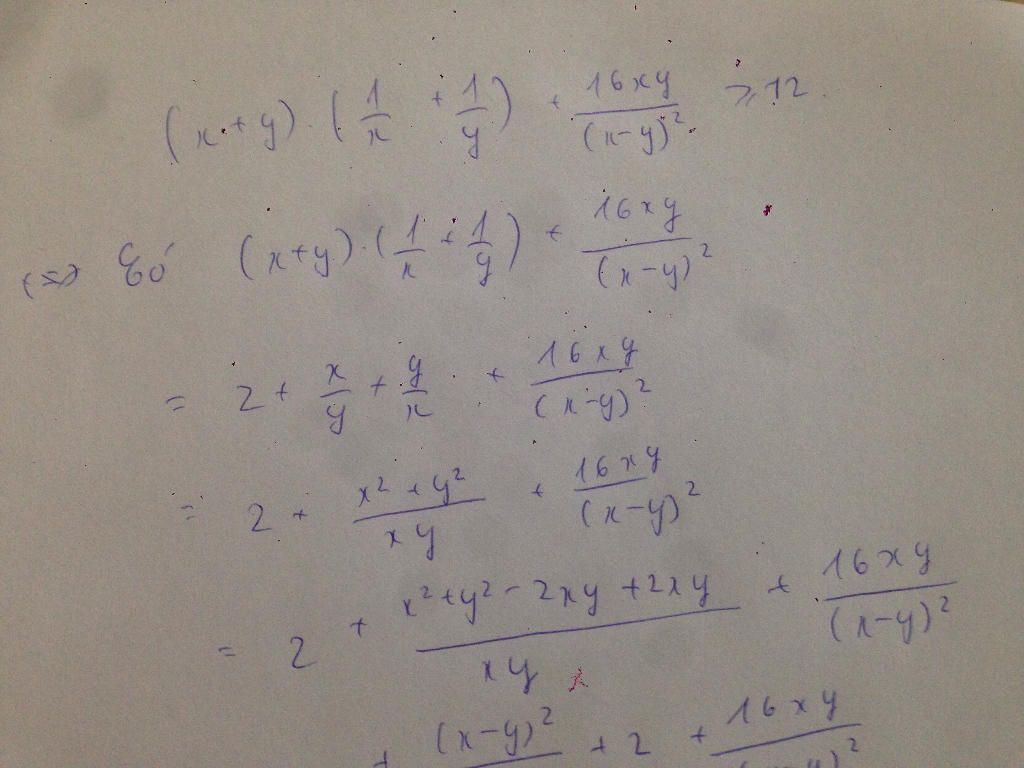 (x+y).(1/x + 1/y) + 16xy/(x-y)² ≥ 12.
(=) Có (x+y).(1/x + 1/y) + 16xy/(x-y)²
= 2 + x/y + y/x + 16xy/(x-y)²
= 2 + (x²+y²)/xy + 16xy/(x-y)²
= 2 + (x²+y²-2xy+2xy)/xy + 16xy/(x-y)²
+ (x-y)² + 2 + 16xy/(x-y)²